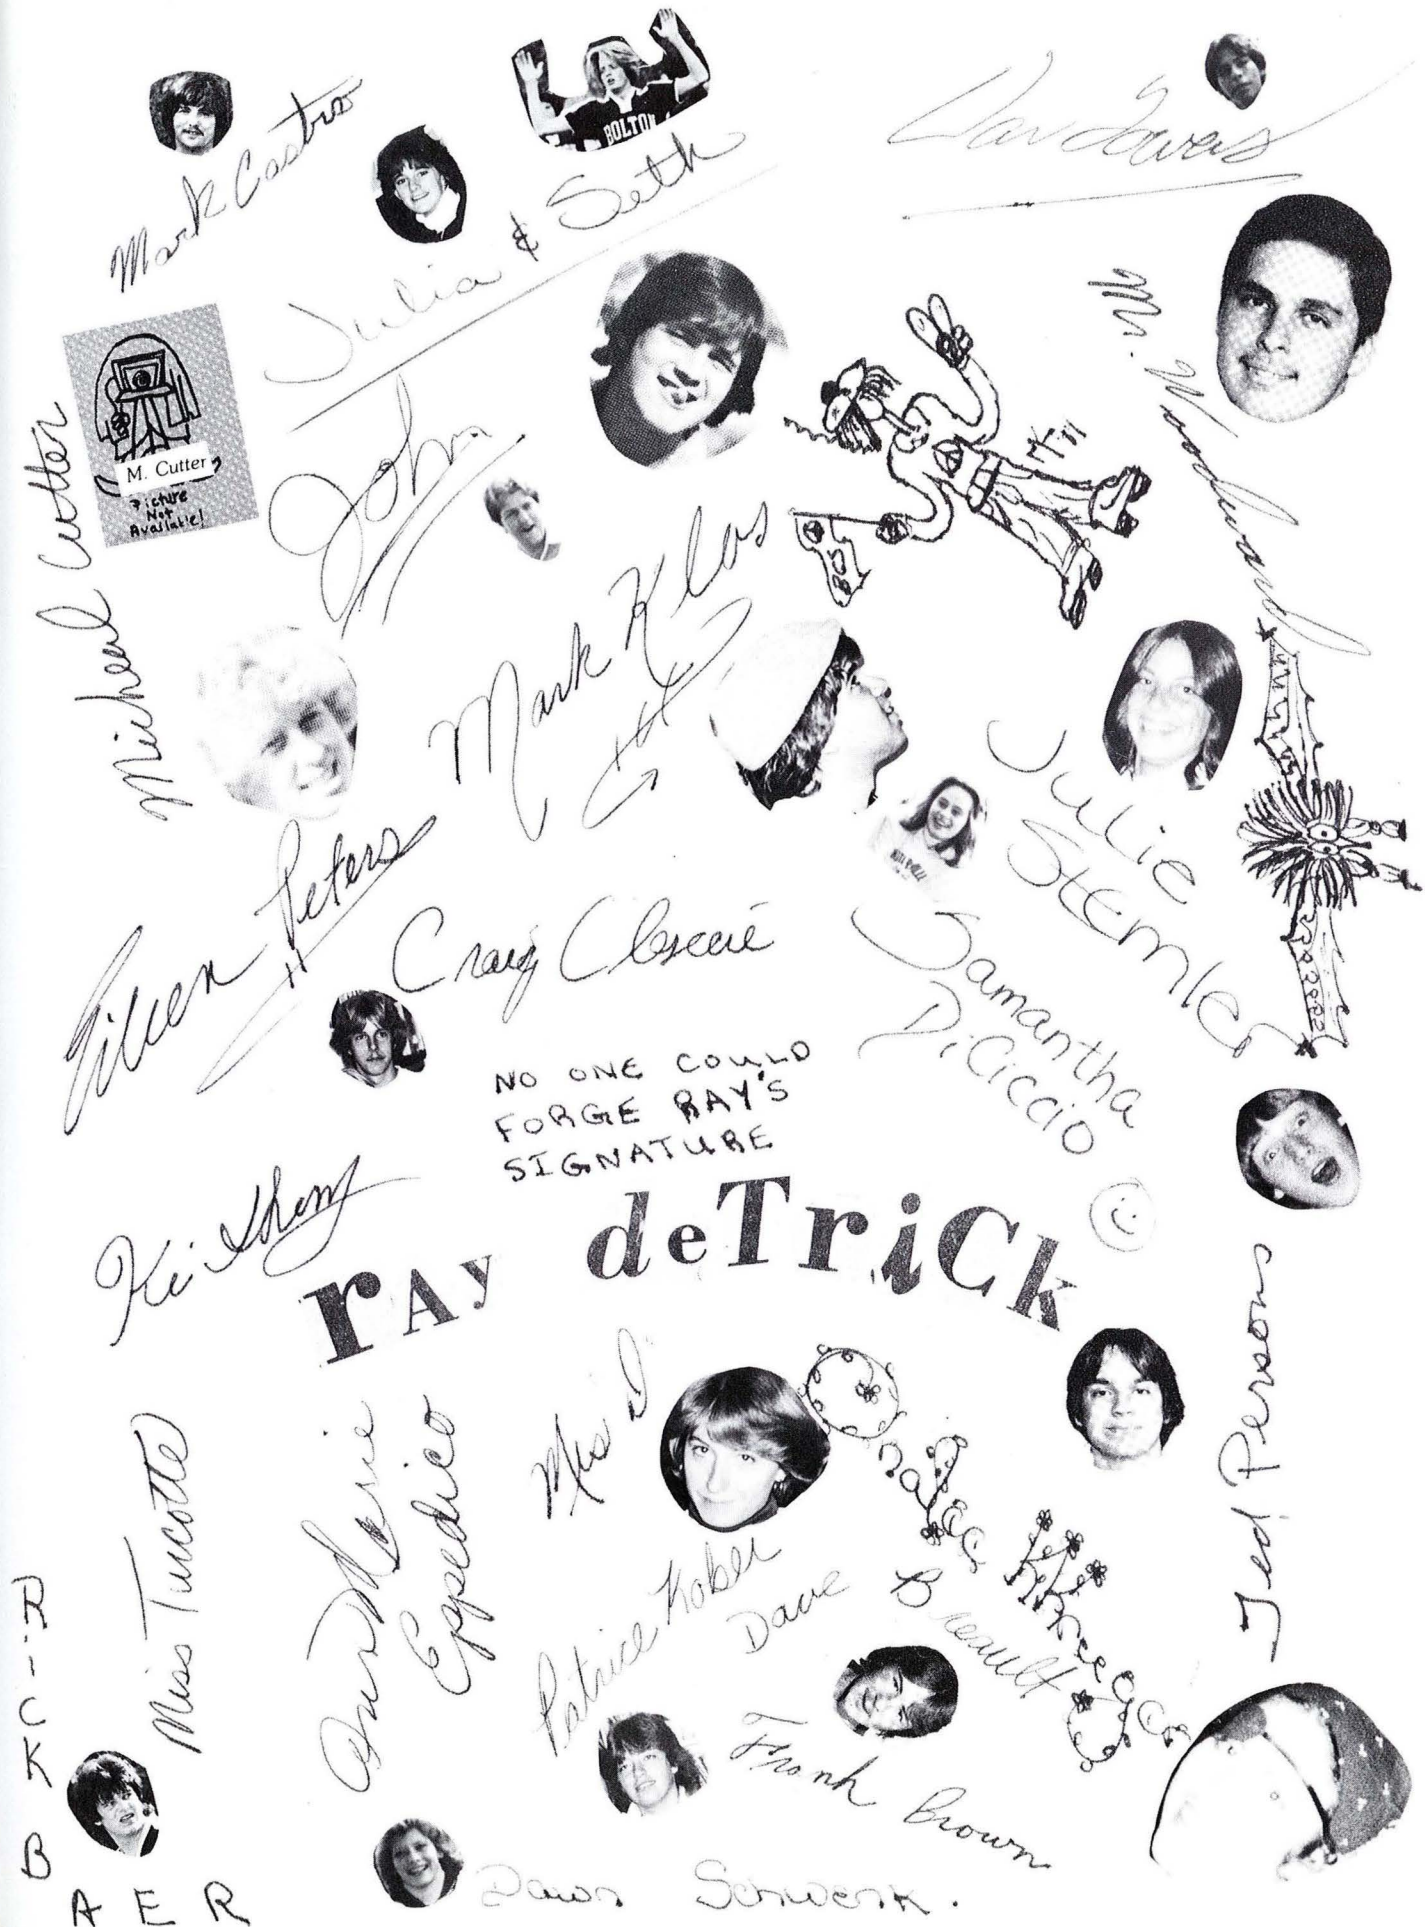 Mark Castro
BOLTON
Julia & Seth
Mr. Woodward
M. Cutter
Picture
Not
Available!
Micheal Cutter
John
Mark Klos
Eileen Peters
Craig
Julie
Stemler
Samantha
DiCiccio
NO ONE COULD
FORGE RAY'S
SIGNATURE
rAy deTriCk
Ted Persons
Miss Turcotte
AnnMarie
Espedico
Patrice Kober
Dave Breault
Frank Brown
RiCK BAER
Dawn Schwenk.